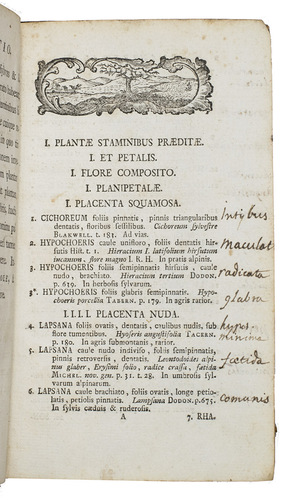 I. PLANTÆ STAMINIBUS PRÆDITÆ.
I. ET PETALIS.
I. FLORE COMPOSITO.
I. PLANIPETALÆ.
I. PLACENTA SQUAMOSA.
1. CICHOREUM foliis pinnatis, pinnis triangularibus
dentatis, floribus sessilibus. Cichoreum sylvestre
BLAKWELL. t. 183. Ad vias.
intibus
2. HYPOCHOERIS caule unifloro, foliis dentatis hir-
sutis Hist. t. I. Hieracium I. latifolium hirsutum
incanum, flore magno I. R. H. In pratis alpinis.
maculat
3. HYPOCHOERIS foliis semipinnatis hirsutis, caule
nudo, brachiato. Hieracium tertium DODON.
p. 639. In herbosis sylvarum.
radicata
3*. HYPOCHOERIS foliis glabris semipinnatis. Hypo-
choeris porcellia TABERN. p. 179. In agris rarior.
glabra
I. I. I. I. PLACENTA NUDA.
4. LAPSANA foliis ovatis, dentatis, caulibus nudis, sub
flore tumentibus. Hyoseris angustifolia TABERN.
p. 180. In agris submontanis, rarior.
minima
5. LAPSANA caule nudo indiviso, foliis semipinnatis,
pinnis retroversis, dentatis. Leontodoides alpi-
nus glaber, Erysimi folio, radice crassa, fœtida
MICHEL. nov. gen. p. 31. t. 28. In umbrosis syl-
varum alpinarum.
fœtida
6. LAPSANA caule brachiato, foliis ovatis, longe petio-
latis, petiolis pinnatis. Lampsana DODON. p. 675.
In sylvis cæduis & ruderosis.
comunis
A
7. RHA.